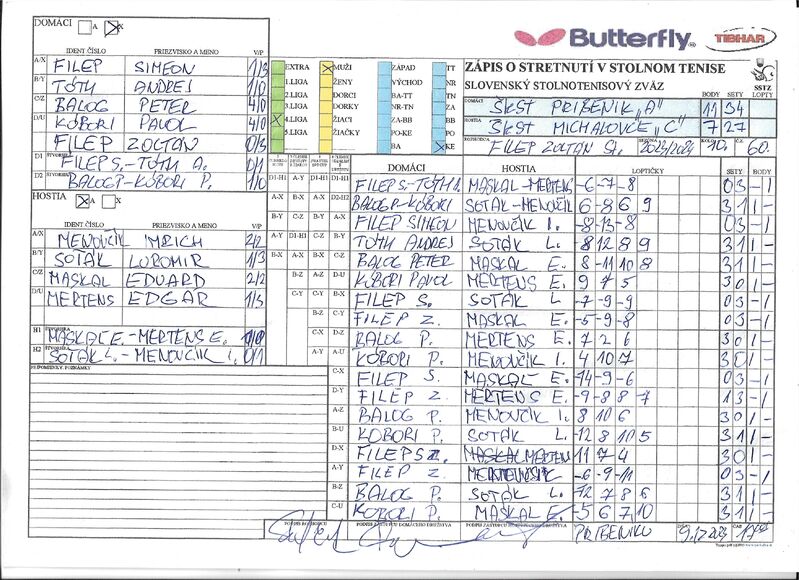 DOMÁCI A X
Butterfly
TIBHAR
IDENT ČÍSLO PRIEZVISKO A MENO V/P
A/X FILEP SIMEON 1/3
B/Y TÓTH ANDREJ 1/0
C/Z BALOG PETER 4/0
D/U KÓBORI PAVOL 4/0
FILEP ZOLTÁN 0/3
D1 ŠTVORHRA FILEP S.-TÓTH A. 0/1
D2 ŠTVORHRA BALOG P.-KÓBORI P. 1/0
HOSTIA A X
IDENT ČÍSLO PRIEZVISKO A MENO V/P
A/X MENOVČÍK IMRICH 2/2
B/Y SOTÁK ĽUBOMIR 1/3
C/Z MASKAL EDUARD 2/2
D/U MERTENS EDGAR 1/3
H1 ŠTVORHRA MASKAL E.-MERTENS E. 1/0
H2 ŠTVORHRA SOTÁK L.-MENOVČÍK I. 0/1
PRIPOMIENKY, POZNÁMKY
EXTRA MUŽI ZÁPAD TT
1.LIGA ŽENY VÝCHOD NR
2.LIGA DORCI BA-TT TN
3.LIGA DORKY NR-TN ZA
4.LIGA ŽIACI ZA-BB BB
5.LIGA ŽIAČKY PO-KE PO
BA KE
ZÁPIS O STRETNUTÍ V STOLNOM TENISE
SLOVENSKÝ STOLNOTENISOVÝ ZVÄZ
SSTZ
BODY SETY LOPTY
DOMÁCI ŠKST PRIBENÍK „A" 11 34
HOSTIA ŠKST MICHALOVCE „C" 7 27
ROZHODCA FILEP ZOLTÁN St. SEZÓNA 2023/2024 KOLO 10. Č. 60.
DOMÁCI HOSTIA LOPTIČKY SETY BODY
D1-H1 FILEP S.-TÓTH A. MASKAL-MERTENS -6 -7 -8 03 -1
D2-H2 BALOG P.-KÓBORI SOTÁK-MENOVČÍK 6 -8 6 9 31 1-
A-X FILEP SIMEON MENOVČÍK I. -8 -13 -8 03 -1
B-Y TÓTH ANDREJ SOTÁK L. -8 12 8 9 31 1-
C-Z BALOG PETER MASKAL E. 8 -11 10 8 31 1-
D-U KÓBORI PAVOL MERTENS E. 9 7 5 30 1-
B-X FILEP S. SOTÁK L. -7 -9 -9 03 -1
FILEP Z. MASKAL E. -5 -9 -8 03 -1
BALOG P. MERTENS E. 7 2 6 30 1-
KÓBORI P. MENOVČÍK I. 4 10 7 30 1-
C-X FILEP S. MASKAL E. -14 -9 -6 03 -1
D-Y FILEP Z. MERTENS E. -9 -8 8 -7 13 -1
A-Z BALOG P. MENOVČÍK I. 8 10 6 30 1-
B-U KÓBORI P. SOTÁK L. -12 8 10 5 31 1-
D-X FILEP S. MERTENS 11 7 4 30 1-
A-Y FILEP Z. -6 -9 -11 03 -1
B-Z BALOG P. SOTÁK L. -12 7 8 6 31 1-
C-U KÓBORI P. MASKAL E. -5 6 7 10 31 1-
PODPIS ROZHODCU PODPIS ZÁSTUPCU DOMÁCEHO DRUŽSTVA PODPIS ZÁSTUPCU HOSŤUJÚCEHO DRUŽSTVA V PRIBENÍKU DŇA ČAS